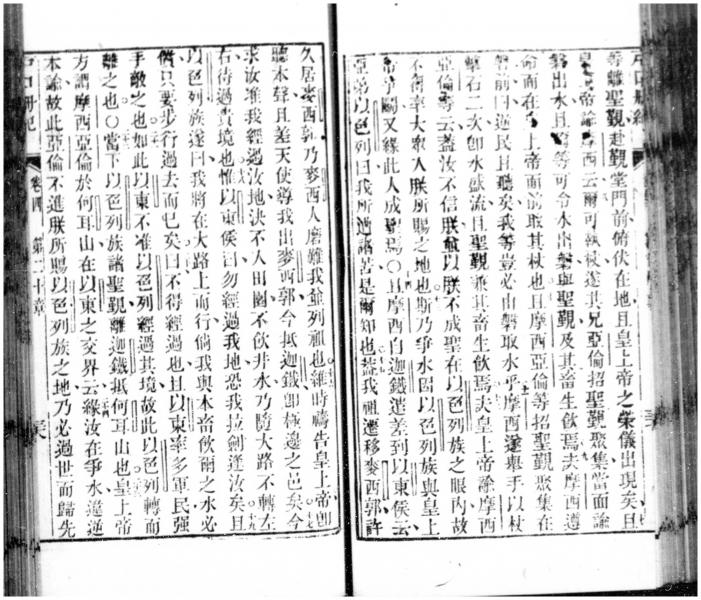 戶口冊紀
等離聖覲赴覲堂門前俯伏在地且皇上帝之榮儀出現矣且
皇上帝諭摩西云爾可執杖遂其兄亞倫招聖覲聚集當面諭
磐出水且爾等可令水出磐與聖覲及其畜生飲焉夫摩西遵
命而在皇上帝面前取其杖也且摩西亞倫等招聖覲聚集在
磐前曰逆民且聽矣我等豈必由磐取水乎摩西遂舉手以杖
擊石二次卽水盛流且聖覲兼其畜生飲焉夫皇上帝諭摩西
亞倫等云蓋汝不信朕致以朕不成聖在以色列族之眼內故
不得率大眾人朕所賜之地也斯乃爭水因以色列族與皇上
帝爭鬬又緣此人成聖焉○且摩西自迦鐵遣差到以東侯云
亞弟以色列曰我所遇諸苦是爾知也葢我祖遷移麥西郭許
久居麥西郭乃麥西人磨難我並列祖也維時禱告皇上帝卽
聽本聲且差天使導我出麥西郭今抵迦鐵卽極邊之邑矣今
求汝准我經過汝地決不入田園不飲井水乃隨大路不轉左
右待過貴境也惟以東侯曰勿經過我地恐我拉劍逢汝矣且
以色列族遂曰我將在大路上而行倘我與本畜飲爾之水必
償只要步行過去而已矣曰不得經過也且以東率多軍民強
手敵之也如此以東不准以色列經過其境故此以色列轉而
離之也○當下以色列族諸聖覲離迦鐵抵何耳山也皇上帝
方謂摩西亞倫於何耳山在以東之交界云緣汝在爭水違逆
本諭故此亞倫不進朕所賜以色列族之地乃必過世而歸先
戶口冊紀 卷四 第二十章